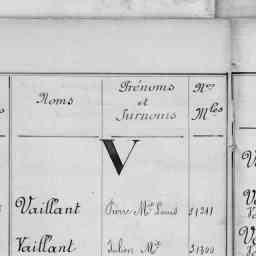 Noms
Prénoms et Surnoms
Nos Mles
V
Vaillant Pierre Mie Louis
Vaillant Julien Mie